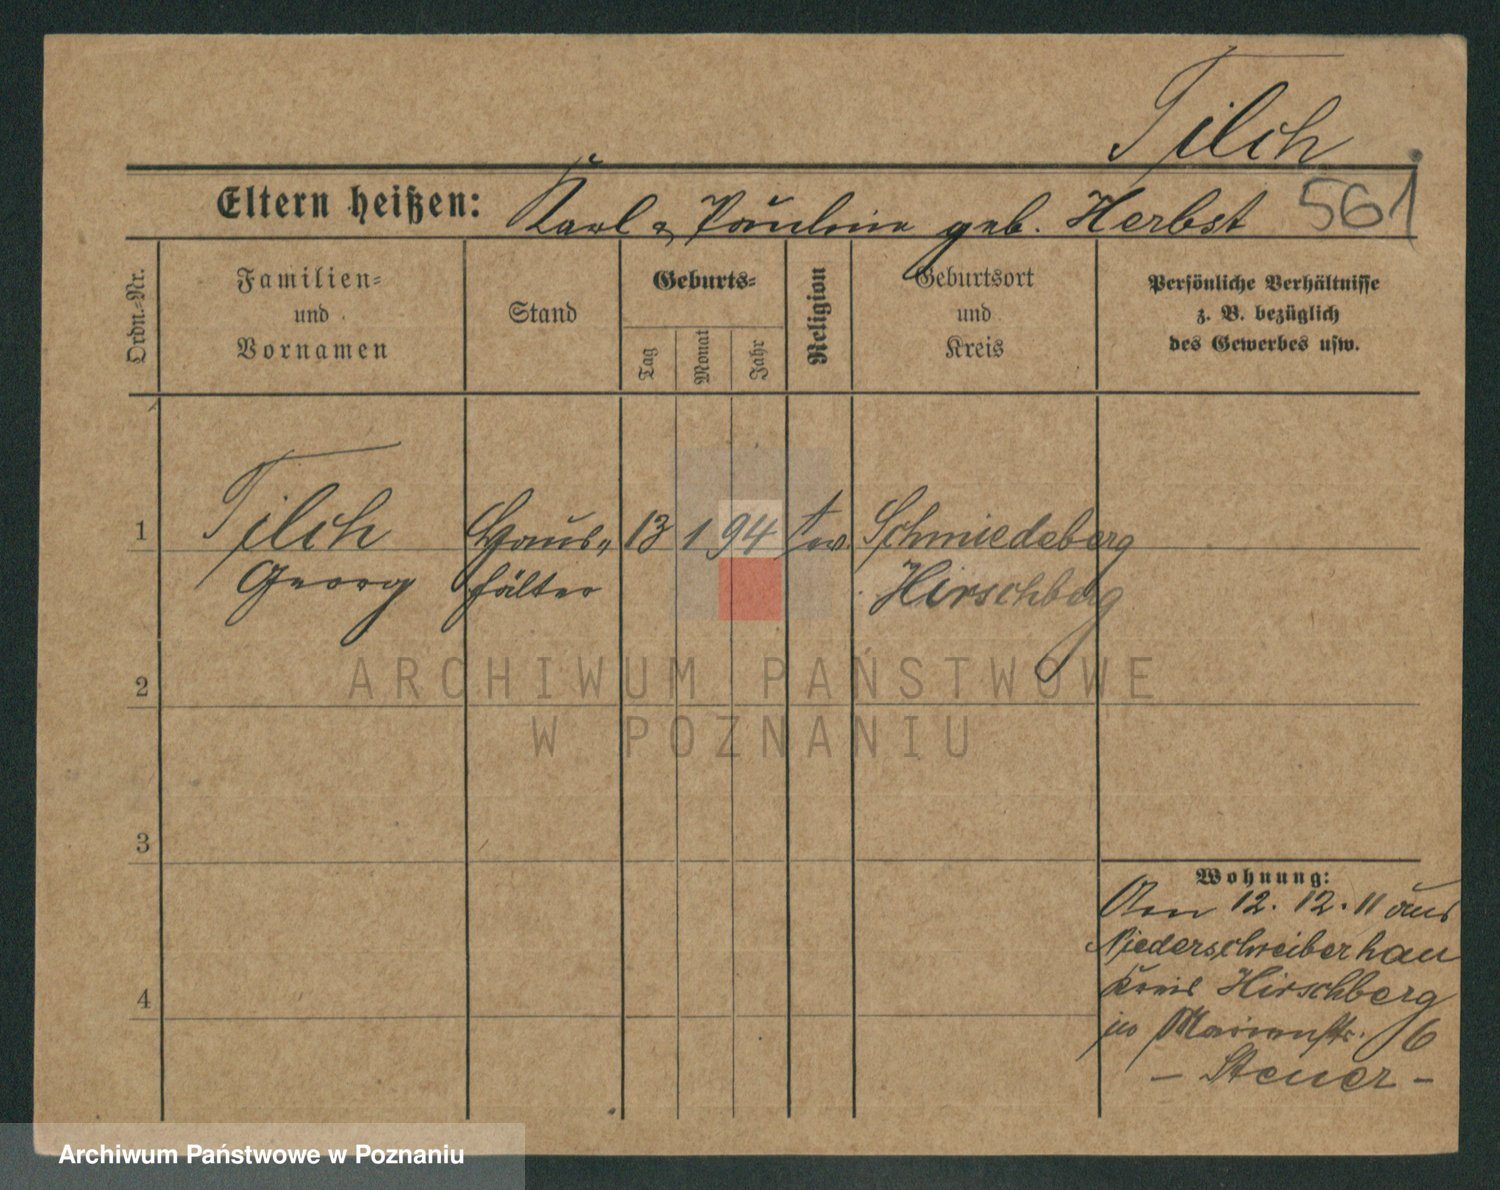 Tilch
Eltern heißen: Karl & Pauline geb. Herbst 561
Ordn.-Nr.
Familien-
und
Vornamen
Stand
Geburts-
Tag
Monat
Jahr
Religion
Geburtsort
und
Kreis
Persönliche Verhältnisse
z. B. bezüglich
des Gewerbes usw.
1 Tilch Haus- 13 1 94 ev. Schmiedeberg
Georg hälter Hirschberg
ARCHIWUM PAŃSTWOWE
2
W POZNANIU
3
Wohnung:
Am 12. 12. 11 aus
Niederschreiberhau
Kreis Hirschberg
4
Marienstr. 6
- Steuer -
Archiwum Państwowe w Poznaniu